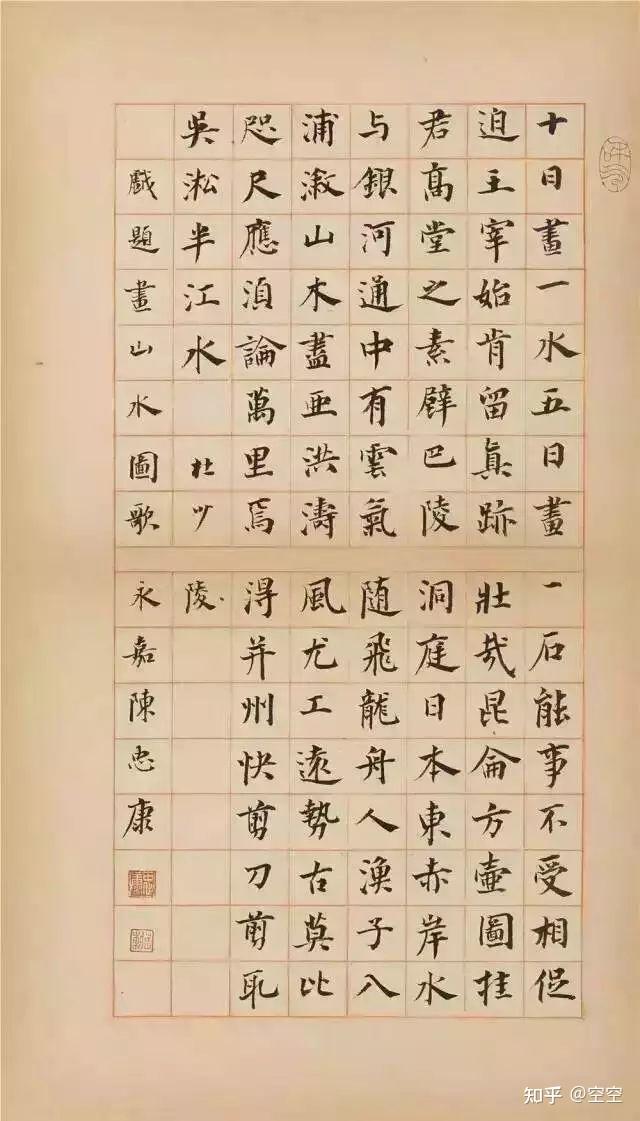 十日畫一水五日畫一石能事不受相促
迫王宰始肯留眞跡壯哉昆侖方壺圖挂
君高堂之素壁巴陵洞庭日本東赤岸水
与銀河通中有雲氣随飛龍舟人漁子入
浦漵山木盡亞洪濤風尤工遠勢古莫比
咫尺應湏論萬里焉得并州快剪刀剪取
吳淞半江水 杜少陵
戲題畫山水圖歌永嘉陳忠康
知乎 @空空